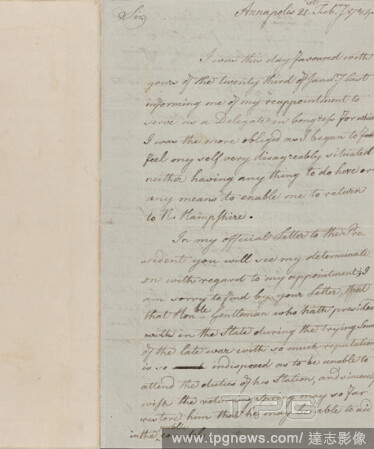 Annapolis 21st Feby 1784
Sir
I was this day favoured with
yours of the twenty third of Jany last
informing me of my reappointment to
serve as a Delegate in Congress for which
I was the more obliged as I began to
feel my self very disagreeably situated
neither having any thing to do here or
any means to enable me to return
to N. Hampshire.
In my official Letter to the Pre
sident you will see my determinati
on with regard to my appointment, I
am sorry to find by your Letter that
that Honble Gentleman who hath presided
with in the State during the trying
of the late war with so much reputation
is so indisposed as to be unable to
attend the duties of his Station, and
wish the may so far
restore him that he may be able to
in the
TPG
www.tpgnews.com | 達志影像